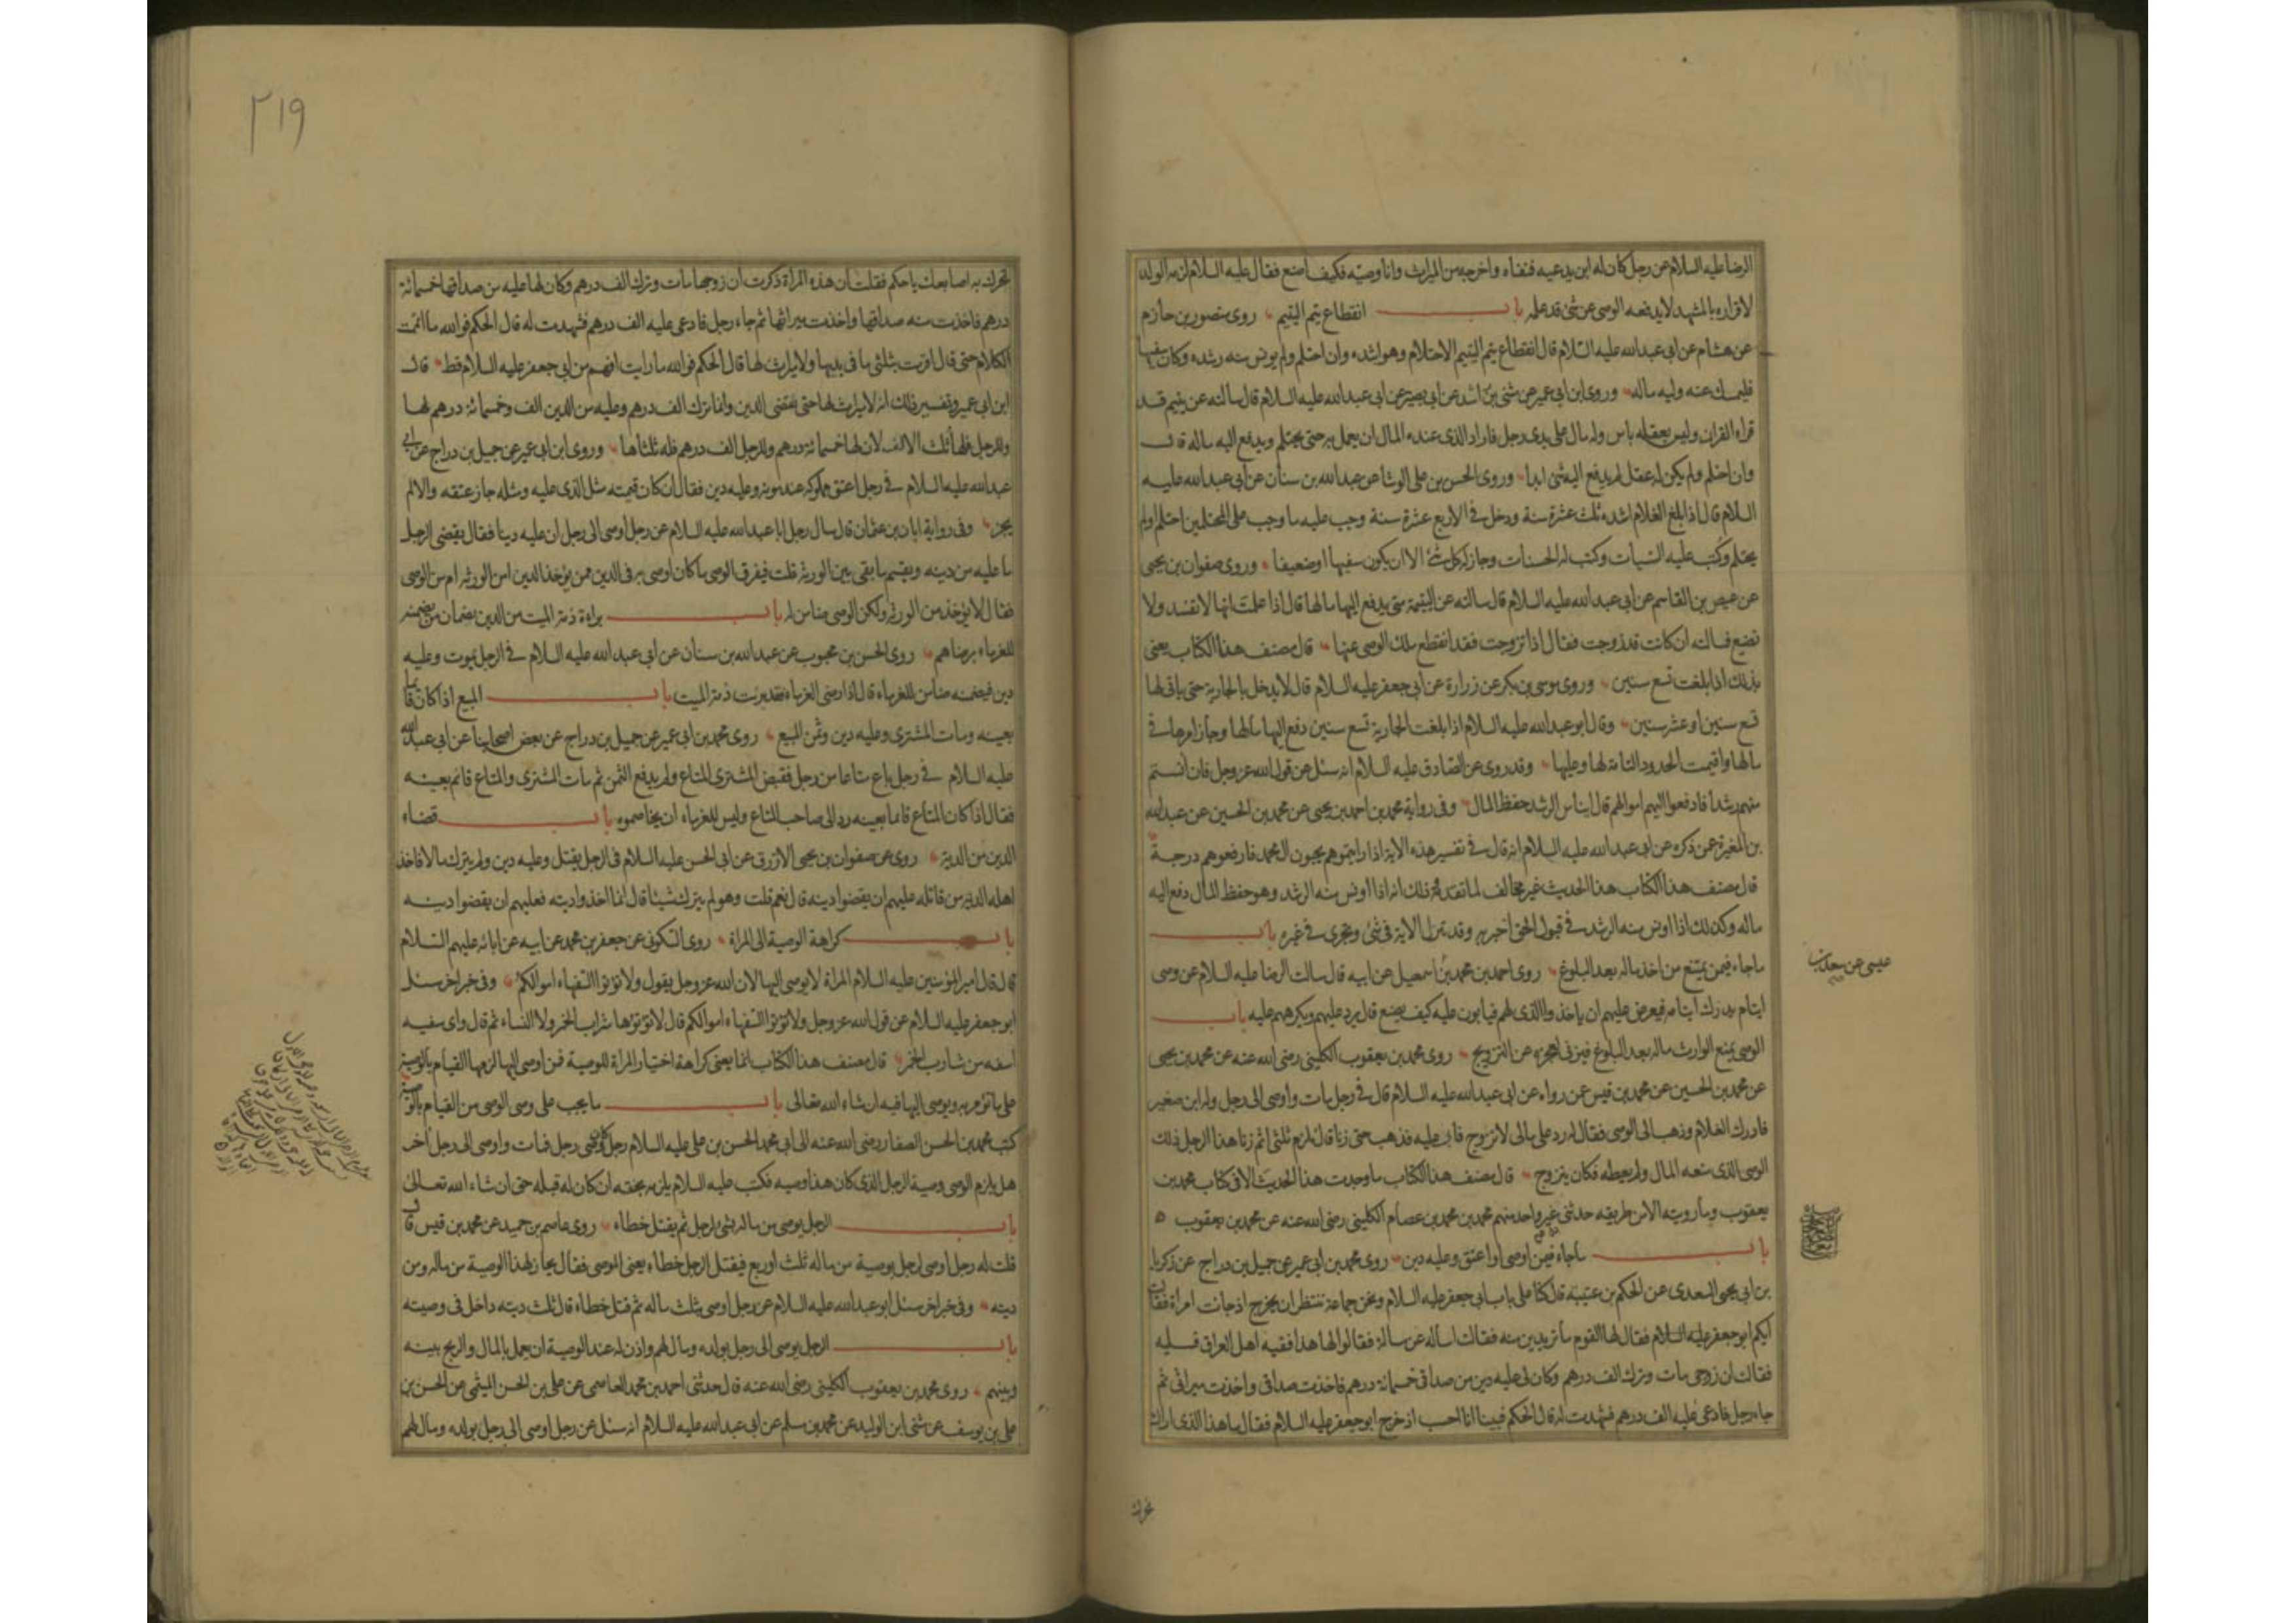 الرضا عليه السلام عن رجل كان له ابن يدعيه فنفاه واخرجه من الميراث وانا وصيه فكيف اصنع فقال عليه السلام لزمه الولد
لاقراره بالمشهد لا يدفعه الوصى عن شئ قد علمه باب انقطاع يتم اليتيم روى منصور بن حازم
عن هشام عن ابى عبد الله عليه السلام قال انقطاع يتم اليتيم الاحتلام وهو اشده وان احتلم ولم يونس منه رشده وكان سفيها
فليمسك عنه وليه ماله وروى ابن ابى عمير عن مثنى بن راشد عن ابى بصير عن ابى عبد الله عليه السلام قال سالته عن يتيم قد
قراء القران وليس بعقله باس وله مال على يدى رجل فاراد الذى عنده المال ان يعمل به حتى يحتلم ويدفع اليه ماله قال
وان احتلم ولم يكن له عقل لم يدفع اليه شئ ابدا وروى الحسن بن على الوشا عن عبد الله بن سنان عن ابى عبد الله عليه
السلام قال اذا بلغ الغلام اشده ثلث عشرة سنة ودخل فى الاربع عشرة سنة وجب عليه ما وجب على المحتلمين احتلم او لم
يحتلم وكتب عليه السيات وكتب له الحسنات وجاز له كل شئ الا ان يكون سفيها او ضعيفا وروى صفوان بن يحيى
عن عيص بن القاسم عن ابى عبد الله عليه السلام قال سالته عن اليتيمة متى يدفع اليها مالها قال اذا علمت انها لا تفسد ولا
تضيع فسالته ان كانت قد زوجت فقال اذا تزوجت فقد انقطع ملك الوصى عنها قال مصنف هذا الكتاب يعنى
بذلك اذا بلغت تسع سنين وروى موسى بن بكر عن زرارة عن ابى جعفر عليه السلام قال لا يدخل بالجارية حتى ياتى لها
تسع سنين او عشر سنين وقال ابو عبد الله عليه السلام اذا بلغت الجارية تسع سنين دفع اليها مالها وجاز امرها فى
مالها واقيمت الحدود التامة لها وعليها وقد روى عن الصادق عليه السلام انه سئل عن قول الله عز وجل فان انستم
منهم رشدا فادفعوا اليهم اموالهم قال ايناس الرشد حفظ المال وفى رواية محمد بن احمد بن يحيى عن محمد بن الحسين عن عبد الله
بن المغيرة عمن ذكره عن ابى عبد الله عليه السلام انه قال فى تفسير هذه الاية اذا رايتموهم يحبون ال محمد فارفعوهم درجة
قال مصنف هذا الكتاب هذا الحديث غير مخالف لما تقدمه وذلك انه اذا اونس منه الرشد وهو حفظ المال دفع اليه
ماله وكذلك اذا اونس منه الرشد فى قبول الحق اختبر به وقد تنزل الاية فى شئ وتجرى فى غيره باب
ما جاء فيمن يمتنع من اخذ ماله بعد البلوغ روى احمد بن محمد بن اسمعيل عن ابيه قال سالت الرضا عليه السلام عن وصى
عيسى عن سعد بن
ايتام يدرك ايتامه فيعرض عليهم ان ياخذوا الذى لهم فيابون عليه كيف يصنع قال يرد عليهم ويكرههم عليه باب
الوصى يمنع الوارث ماله بعد البلوغ فيزنى لعجزه عن التزويج روى محمد بن يعقوب الكلينى رضى الله عنه عن محمد بن يحيى
عن محمد بن الحسين عن محمد بن قيس عن رواه عن ابى عبد الله عليه السلام قال فى رجل مات واوصى الى رجل وله ابن صغير
فادرك الغلام وذهب الى الوصى فقال له رد على مالى لاتزوج فابى عليه فذهب حتى زنا قال يلزم ثلثى اثم زنا هذا الرجل ذلك
الوصى الذى منعه المال ولم يعطه فكان يتزوج قال مصنف هذا الكتاب ما وجدت هذا الحديث الا فى كتاب محمد بن
يعقوب وما رويته الا من طريقه حدثنى غير واحد منهم محمد بن محمد بن عصام الكلينى رضى الله عنه عن محمد بن يعقوب
باب ما جاء فيمن اوصى او اعتق وعليه دين روى محمد بن ابى عمير عن جميل بن دراج عن زكريا
بن ابى يحيى السعدى عن الحكم بن عتيبة قال كنا على باب ابى جعفر عليه السلام ونحن جماعة ننتظر ان يخرج اذ جائت امراة فقالت
ايكم ابو جعفر عليه السلام فقال لها القوم ما تريدين منه فقالت اساله عن مسالة فقالوا لها هذا فقيه اهل العراق فسليه
فقالت ان زوجى مات وترك الف درهم وكان لى عليه دين من صداقى خمسمائة درهم فاخذت صداقى واخذت ميراثى ثم
جاء رجل فادعى عليه الف درهم فشهدت له قال الحكم فبينا انا احسب اذ خرج ابو جعفر عليه السلام فقال ما هذا الذى اراك
تحرك
٢١٩
تحرك به اصابعك يا حكم فقلت ان هذه المراة ذكرت ان زوجها مات وترك الف درهم وكان لها عليه من صداقها خمسمائة
درهم فاخذت منه صداقها واخذت ميراثها ثم جاء رجل فادعى عليه الف درهم فشهدت له قال الحكم فوالله ما اتممت
الكلام حتى قال اقرت بثلثى ما فى يديها ولا ميراث لها قال الحكم فوالله ما رايت افهم من ابى جعفر عليه السلام قط قال
ابن ابى عمير وتفسير ذلك انه لا ميراث لها حتى تقضى الدين وانما ترك الف درهم وعليه من الدين الف وخمسمائة درهم لها
وللرجل فلها ثلث الالف لان لها خمسمائة درهم وللرجل الف درهم فله ثلثاها وروى ابن ابى عمير عن جميل بن دراج عن ابى
عبد الله عليه السلام فى رجل اعتق مملوكه عند موته وعليه دين فقال ان كان قيمته مثل الذى عليه ومثله جاز عتقه والا لم
يجز وفى رواية ابان بن عثمان قال سال رجل ابا عبد الله عليه السلام عن رجل اوصى الى رجل ان عليه دينا فقال يقضى الرجل
ما عليه من دينه ويقسم ما بقى بين الورثة قلت فيفرق الوصى ما كان اوصى به فى الدين ممن يؤخذ الدين امن الورثة ام من الوصى
فقال لا يؤخذ من الورثة ولكن الوصى ضامن له باب براءة ذمة الميت من الدين بضمان من يضمنه
للغرماء برضاهم روى الحسن بن محبوب عن عبد الله بن سنان عن ابى عبد الله عليه السلام فى الرجل يموت وعليه
دين فيضمنه ضامن للغرماء قال اذا رضى الغرماء فقد برئت ذمة الميت باب المبيع اذا كان قائما
بعينه ومات المشترى وعليه دين وثمن المبيع روى محمد بن ابى عمير عن جميل بن دراج عن بعض اصحابنا عن ابى عبد الله
عليه السلام فى رجل باع متاعا من رجل فقبض المشترى المتاع ولم يدفع الثمن ثم مات المشترى والمتاع قائم بعينه
فقال اذا كان المتاع قائما بعينه رد الى صاحب المتاع وليس للغرماء ان يخاصموه باب قضاء
الدين من الدية روى عن صفوان بن يحيى الازرق عن ابى الحسن عليه السلام فى الرجل يقتل وعليه دين ولم يترك مالا فاخذ
اهله الدية من قاتله عليهم ان يقضوا دينه قال نعم قلت وهو لم يترك شيئا قال انما اخذوا ديته فعليهم ان يقضوا دينه
باب كراهة الوصية الى المراة روى السكونى عن جعفر بن محمد عن ابيه عن ابائه عليهم السلام
قال قال امير المؤمنين عليه السلام المراة لا يوصى اليها لان الله عز وجل يقول ولا تؤتوا السفهاء اموالكم وفى خبر اخر سئل
ابو جعفر عليه السلام عن قول الله عز وجل ولا تؤتوا السفهاء اموالكم قال لا تؤتوها شراب الخمر ولا النساء ثم قال واى سفيه
اسفه من شارب الخمر قال مصنف هذا الكتاب انما يعنى كراهة اختيار المراة للوصية فمن اوصى اليها لزمها القيام بالوصية
على ما تؤمر به ويوصى اليها فيه ان شاء الله تعالى باب ما يجب على وصى الوصى من القيام بالوصية
كتب محمد بن الحسن الصفار رضى الله عنه الى ابى محمد الحسن بن على عليه السلام رجل كان وصى رجل فمات واوصى الى رجل اخر
هل يلزم الوصى وصية الرجل الذى كان هذا وصيه فكتب عليه السلام يلزمه بحقه ان كان له قبله حق ان شاء الله تعالى
باب الرجل يوصى من ماله بشئ لرجل ثم يقتل خطاء روى عاصم بن حميد عن محمد بن قيس قال
قلت له رجل اوصى لرجل بوصية من ماله ثلث او ربع فيقتل الرجل خطاء يعنى الموصى فقال يجاز لهذا الوصية من ماله ومن
ديته وفى خبر اخر سئل ابو عبد الله عليه السلام عن رجل اوصى بثلث ماله ثم قتل خطاء قال ثلث ديته داخل فى وصيته
باب الرجل يوصى الى رجل بولده ومال لهم واذن له عند الوصية ان يعمل بالمال والربح بينه
وبينهم روى محمد بن يعقوب الكلينى رضى الله عنه قال حدثنى احمد بن محمد العاصمى عن على بن الحسن الميثمى عن الحسن بن
على بن يوسف عن مثنى ابن الوليد عن محمد بن مسلم عن ابى عبد الله عليه السلام انه سئل عن رجل اوصى الى رجل بولده ومال لهم